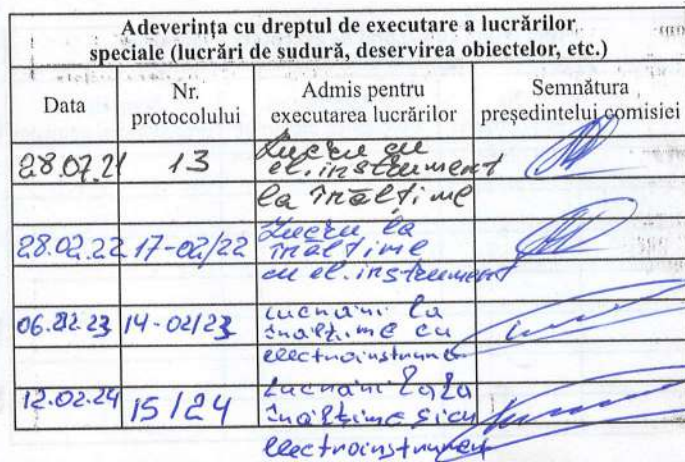 Adeverința cu dreptul de executare a lucrărilor
speciale (lucrări de sudură, deservirea obiectelor, etc.)
Data
Nr.
protocolului
Admis pentru
executarea lucrărilor
Semnătura
președintelui comisiei
28.07.21 13 Lucru cu
el. instrument
la înălțime
28.02.22 17-02/22 Lucru la
înălțime
cu el. instrument
06.02.23 14-02/23 Lucrări la
înălțime cu
electroinstrument
12.02.24 15/24 Lucrări la
înălțime și cu
electroinstrument